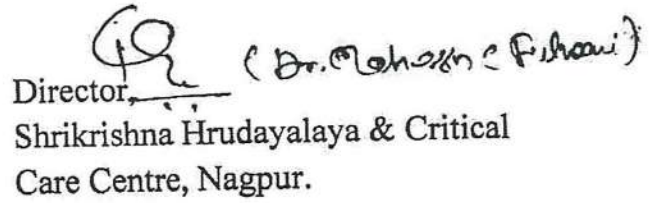 (Dr.
Director,
Shrikrishna Hrudayalaya & Critical
Care Centre, Nagpur.